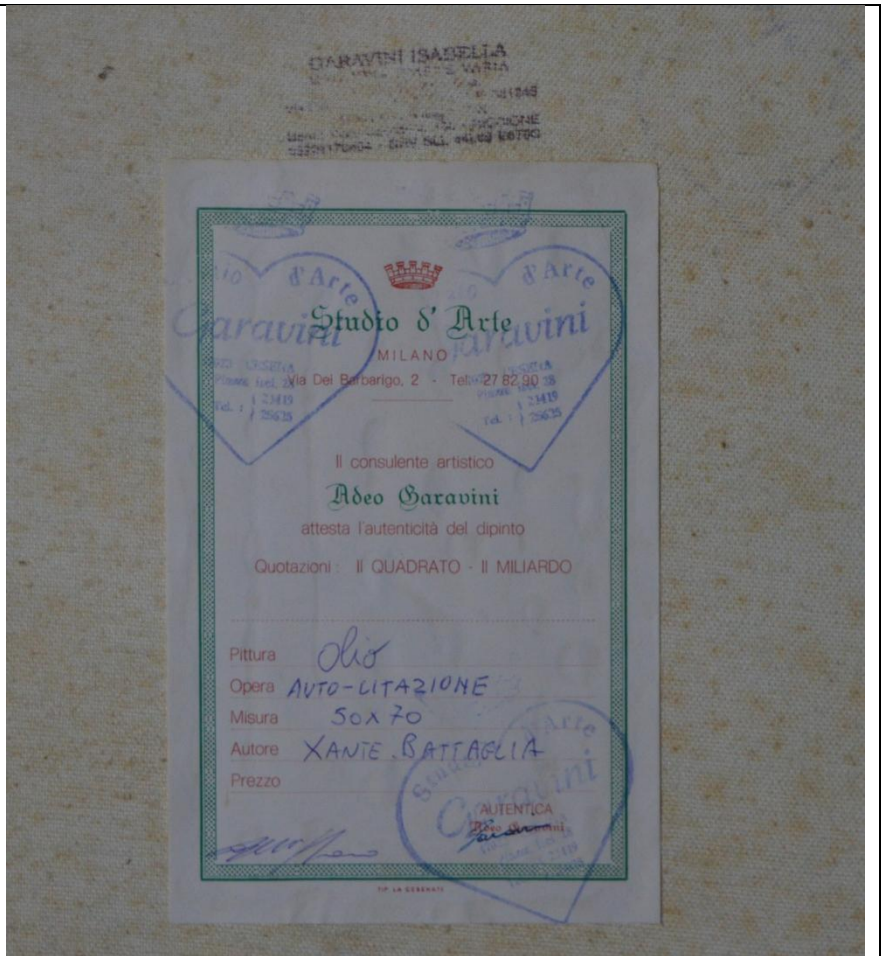 GARAVINI ISABELLA
VARIA
RICCIONE
d'Arte
d'Arte
Garavini
Garavini
CESENA
Tel. : 23419
25625
Tel. : 23419
25625
Studio d' Arte
MILANO
Via Dei Barbarigo, 2 - Tel. 27 82 90
Il consulente artistico
Adeo Garavini
attesta l'autenticità del dipinto
Quotazioni : Il QUADRATO - Il MILIARDO
Pittura Olio
Opera AUTO-CITAZIONE
Misura 50x70
Autore XANTE BATTAGLIA
Prezzo
Studio d'Arte
Garavini
AUTENTICA
Adeo Garavini
TIP. LA CESENATE